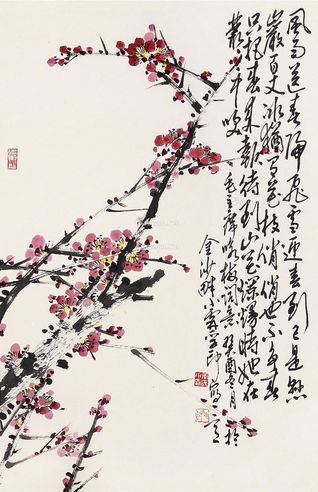 風雨送春歸飛雪迎春到已是懸
巖百丈冰猶有花枝俏俏也不爭春
只把春來報待到山花爛漫時她在
叢中笑 毛主席咏梅詞意 癸酉冬月於
金陵